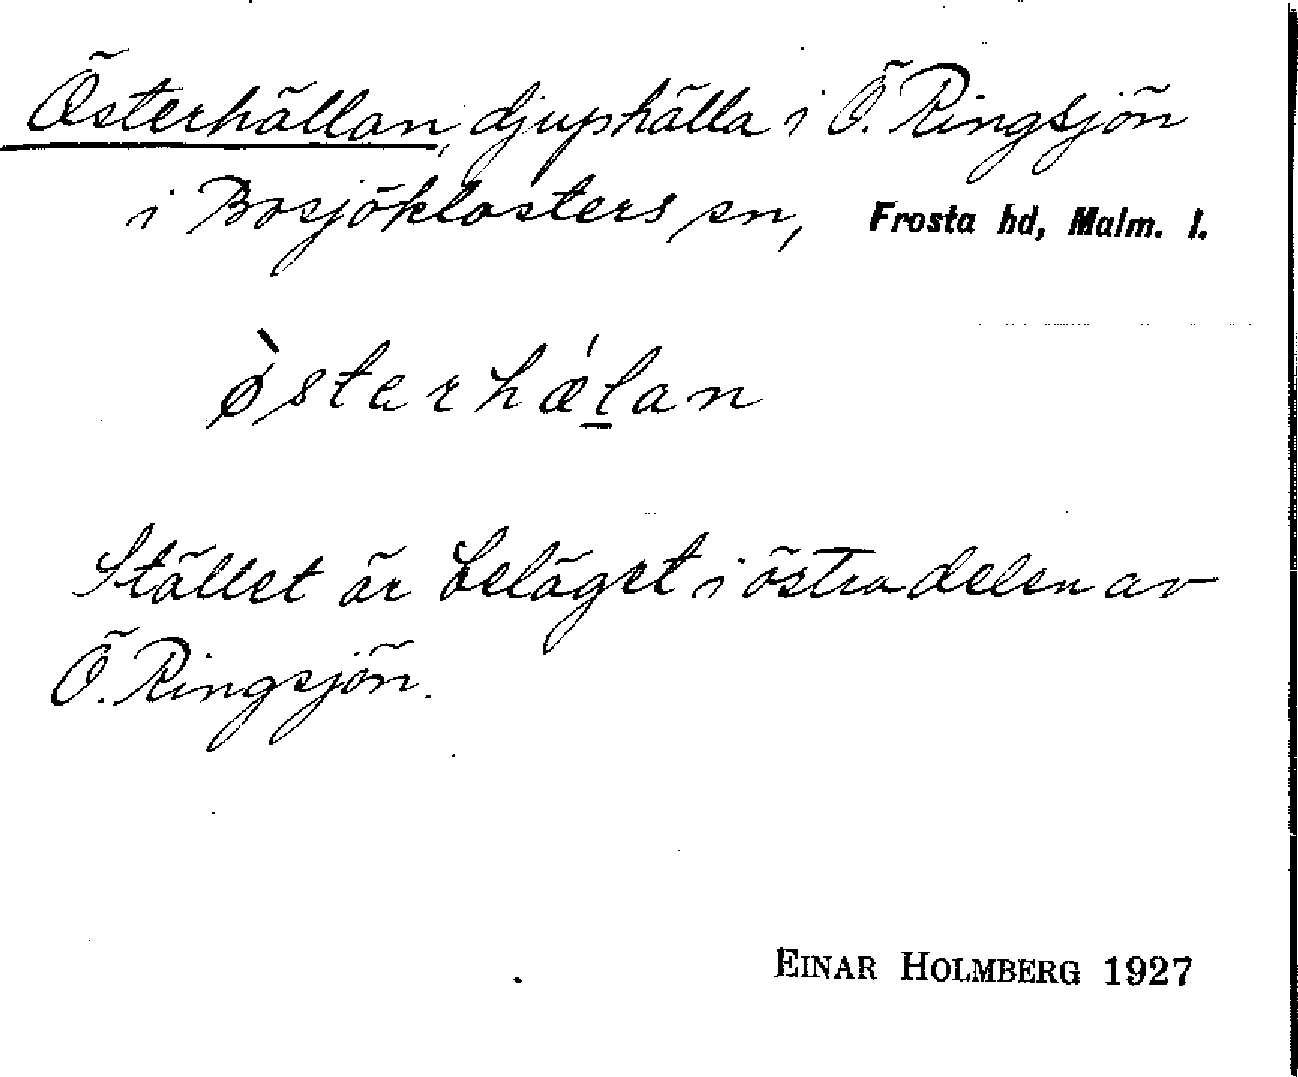 Österhällan, djuphälla i Ö. Ringsjön
i Bosjöklosters sn, Frosta hd, Malm. l.
ø̀starhǽl̲an
Stället är beläget i östra delen av
Ö. Ringsjön.
EINAR HOLMBERG 1927